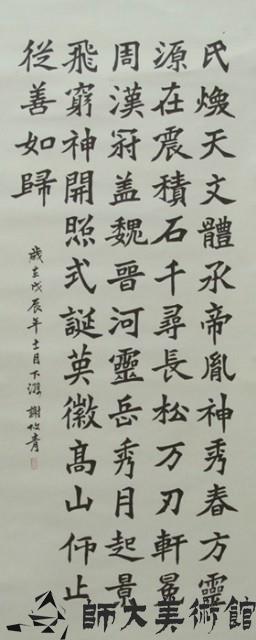 氏煥天文體承帝胤神秀春方靈
源在震積石千尋長松万刃軒冕
周漢冠盖魏晉河靈岳秀月起景
飛窮神開照式誕英徽高山仰止
從善如歸
歲在戊辰年十一月下澣 謝
師大美術館